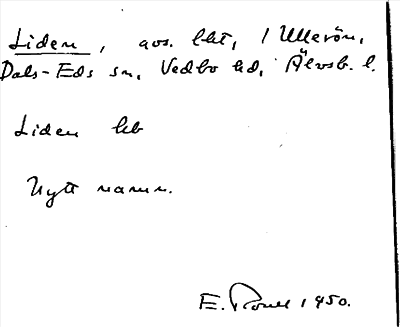 Liden, avs. lht, 1 Ullerön,
Dals-Eds sn, Vedbo hd, Älvsb. l.
Liden lkb
Nytt namn.
E. 1950.